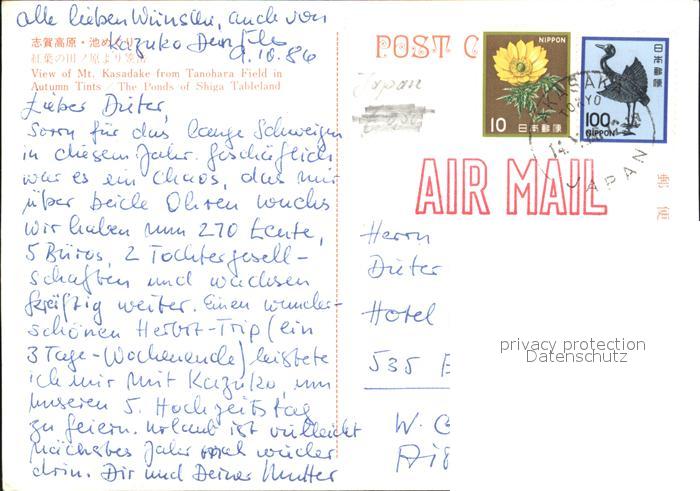 alle lieben Wünsche, auch von
Kazuko
9.10.86
志賀高原・池めぐり
紅葉の田ノ原より笠岳
View of Mt. Kasadake from Tanohara Field in
Autumn Tints / The Ponds of Shiga Tableland
Lieber Dieter,
Sorry für das lange Schweigen
in diesem Jahr. Geschäftlich
war es ein Chaos, das mir
über beide Ohren wuchs
wir haben nun 270 Leute,
5 Büros, 2 Tochtergesell-
schaften und wachsen
kräftig weiter. Einen wunder-
schönen Herbst-Trip (ein
3 Tage-Wochenende) leistete
ich mir mit Kazuko, um
unseren 5. Hochzeitstag
zu feiern. Urlaub ist vielleicht
nächstes Jahr mal wieder
drin. Dir und Deiner Mutter
POST C
Japan
NIPPON
10 日本郵便
日本郵便
100
NIPPON
TOKYO
JAPAN
AIR MAIL
郵便
Herrn
Dieter
Hotel
535
W. G
privacy protection
Datenschutz